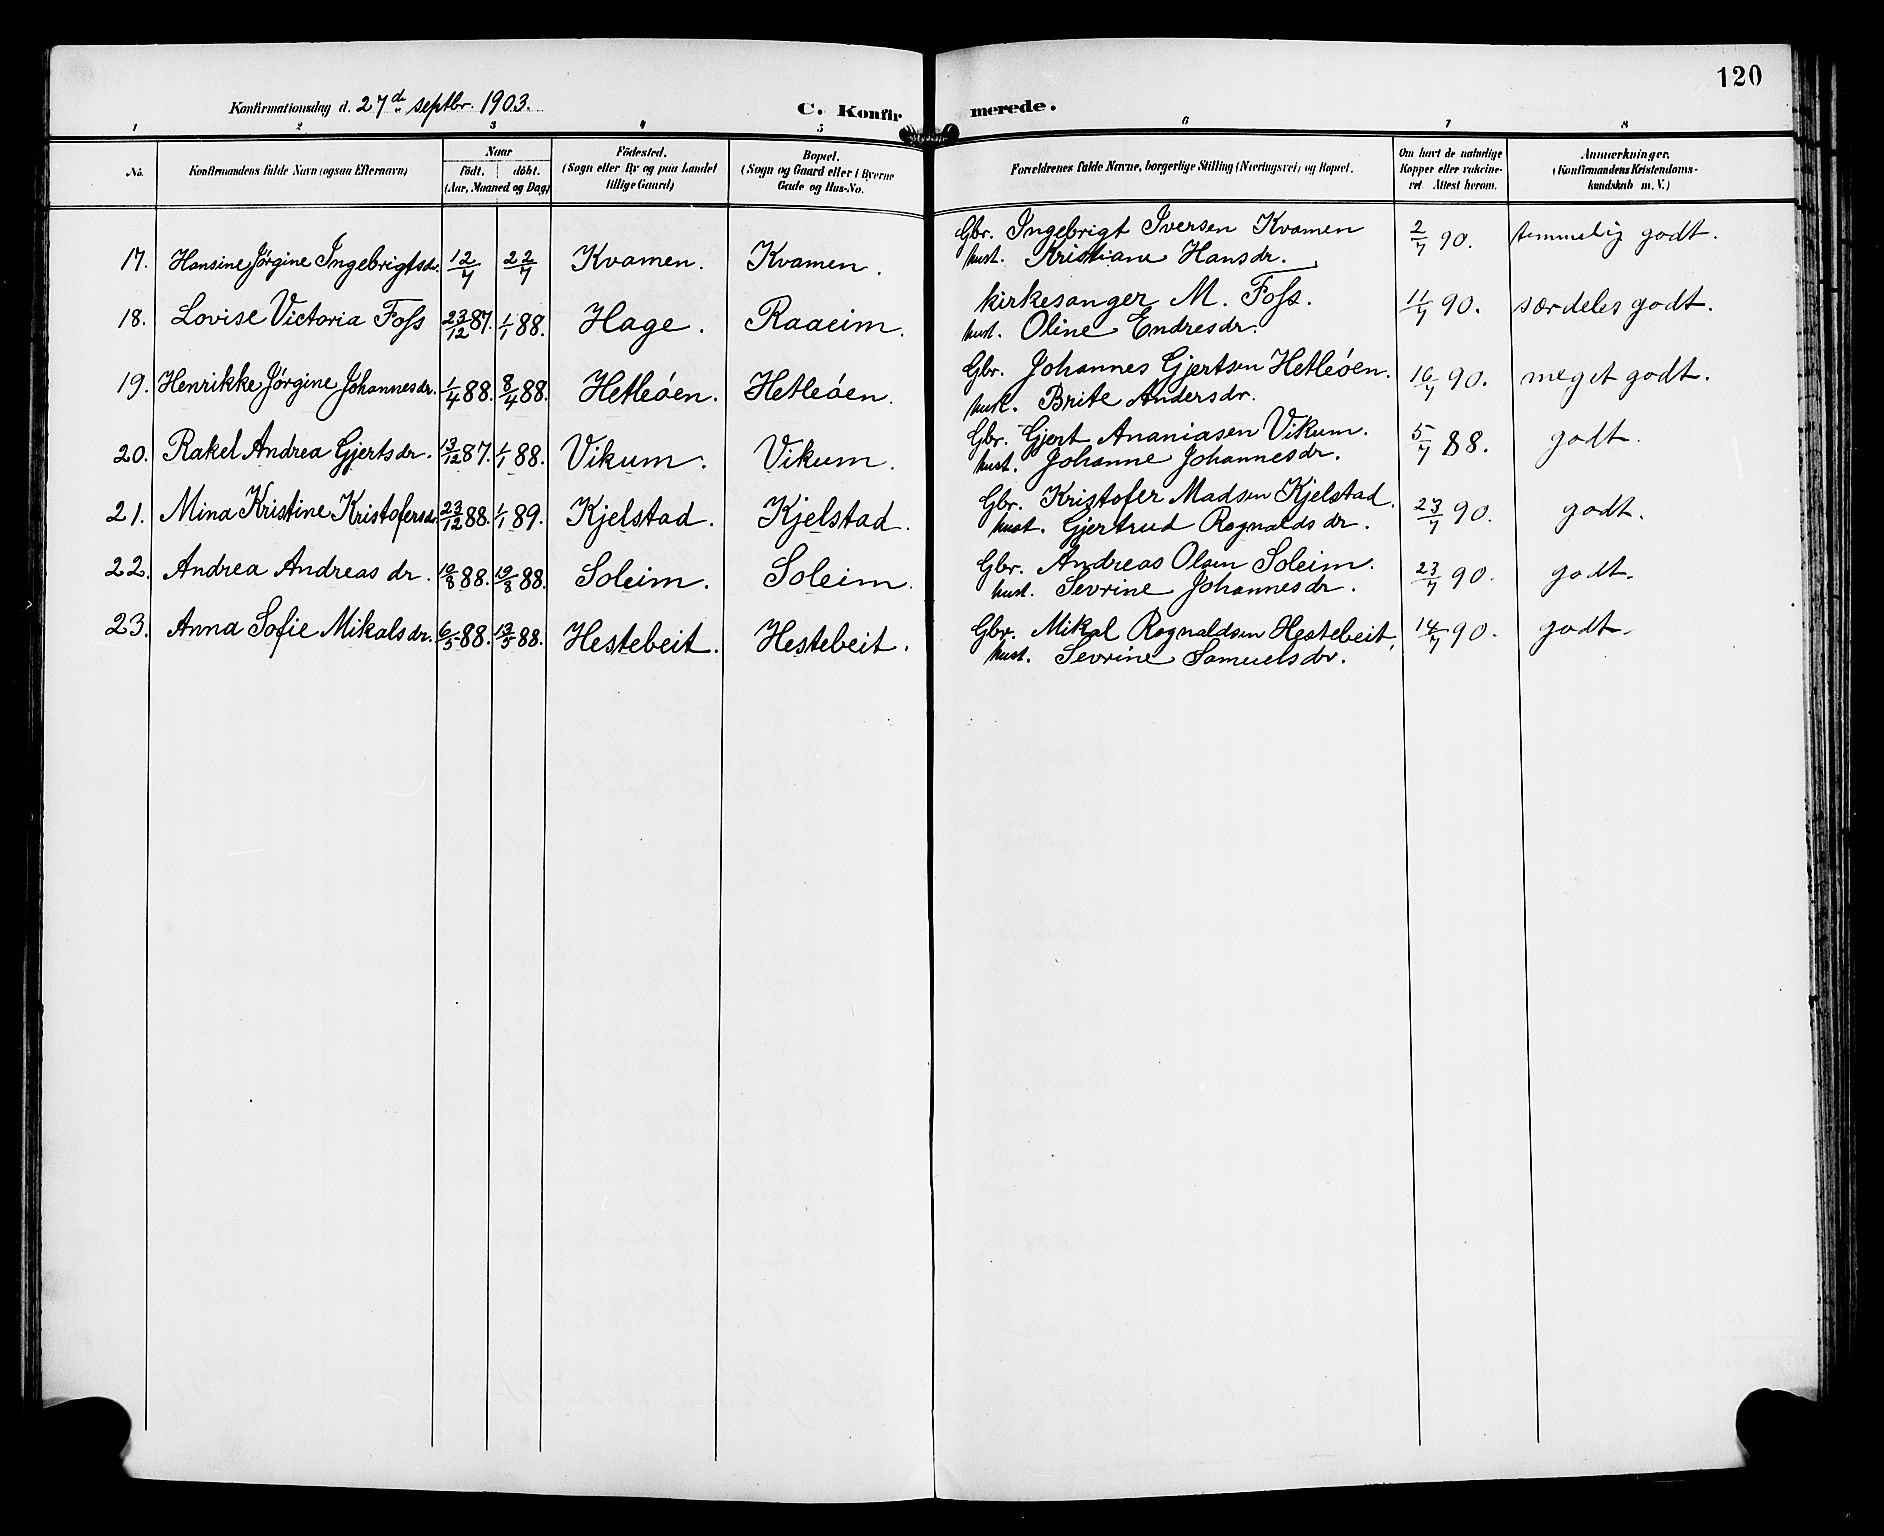 120
Konfirmationsdag d. 27de septbr. 1903. C. Konfirmerede.
1 2 3 4 5 6 7 8
No. Konfirmandens fulde Navn (ogsaa Efternavn) Naar födt. döbt. (Aar, Maaned og Dag) Födested. (Sogn eller By og paa Landet tillige Gaard) Bopæl. (Sogn og Gaard eller i Byerne Gade og Hus-No. Forældrenes fulde Navne, borgerlige Stilling (Næringsvei) og Bopæl. Om havt de naturlige Kopper eller vaccineret. Attest herom. Anmærkninger. (Konfirmandens Kristendomskundskab m. V.)
17. Hansine Jørgine Ingebrigtsdr. 12/7 22/7 Kvamen. Kvamen. Gbr. Ingebrigt Iversen Kvamen 2/7 90. temmelig godt.
hust. Kristiane Hansdr.
18. Lovise Victoria Foss 23/12 87. 1/1 88. Hage. Raaeim. kirkesanger M. Foss. 11/7 90. særdeles godt.
hust. Oline Endresdr.
19. Henrikke Jørgine Johannesdr. 1/4 88. 8/4 88. Hetleøen. Hetleøen. Gbr. Johannes Gjertsen Hetleøen. 16/7 90. meget godt.
hust. Brite Andersdr.
20. Rakel Andrea Gjertsdr. 13/12 87. 1/1 88. Vikum. Vikum. Gbr. Gjert Ananiasen Vikum. 5/7 88. godt.
hust. Johanne Johannesdr.
21. Mina Kristine Kristofersdr. 23/12 88. 1/1 89. Kjelstad. Kjelstad. Gbr. Kristofer Madsen Kjelstad. 23/7 90. godt.
hust. Gjertrud Rognaldsdr.
22. Andrea Andreasdr. 10/8 88. 19/8 88. Soleim. Soleim. Gbr. Andreas Olsen Soleim. 23/7 90. godt.
hust. Sevrine Johannesdr.
23. Anna Sofie Mikalsdr. 6/5 88. 13/5 88. Hestebeit. Hestebeit. Gbr. Mikal Rognaldsen Hestebeit, 14/7 90. godt.
hust. Sevrine Samuelsdr.